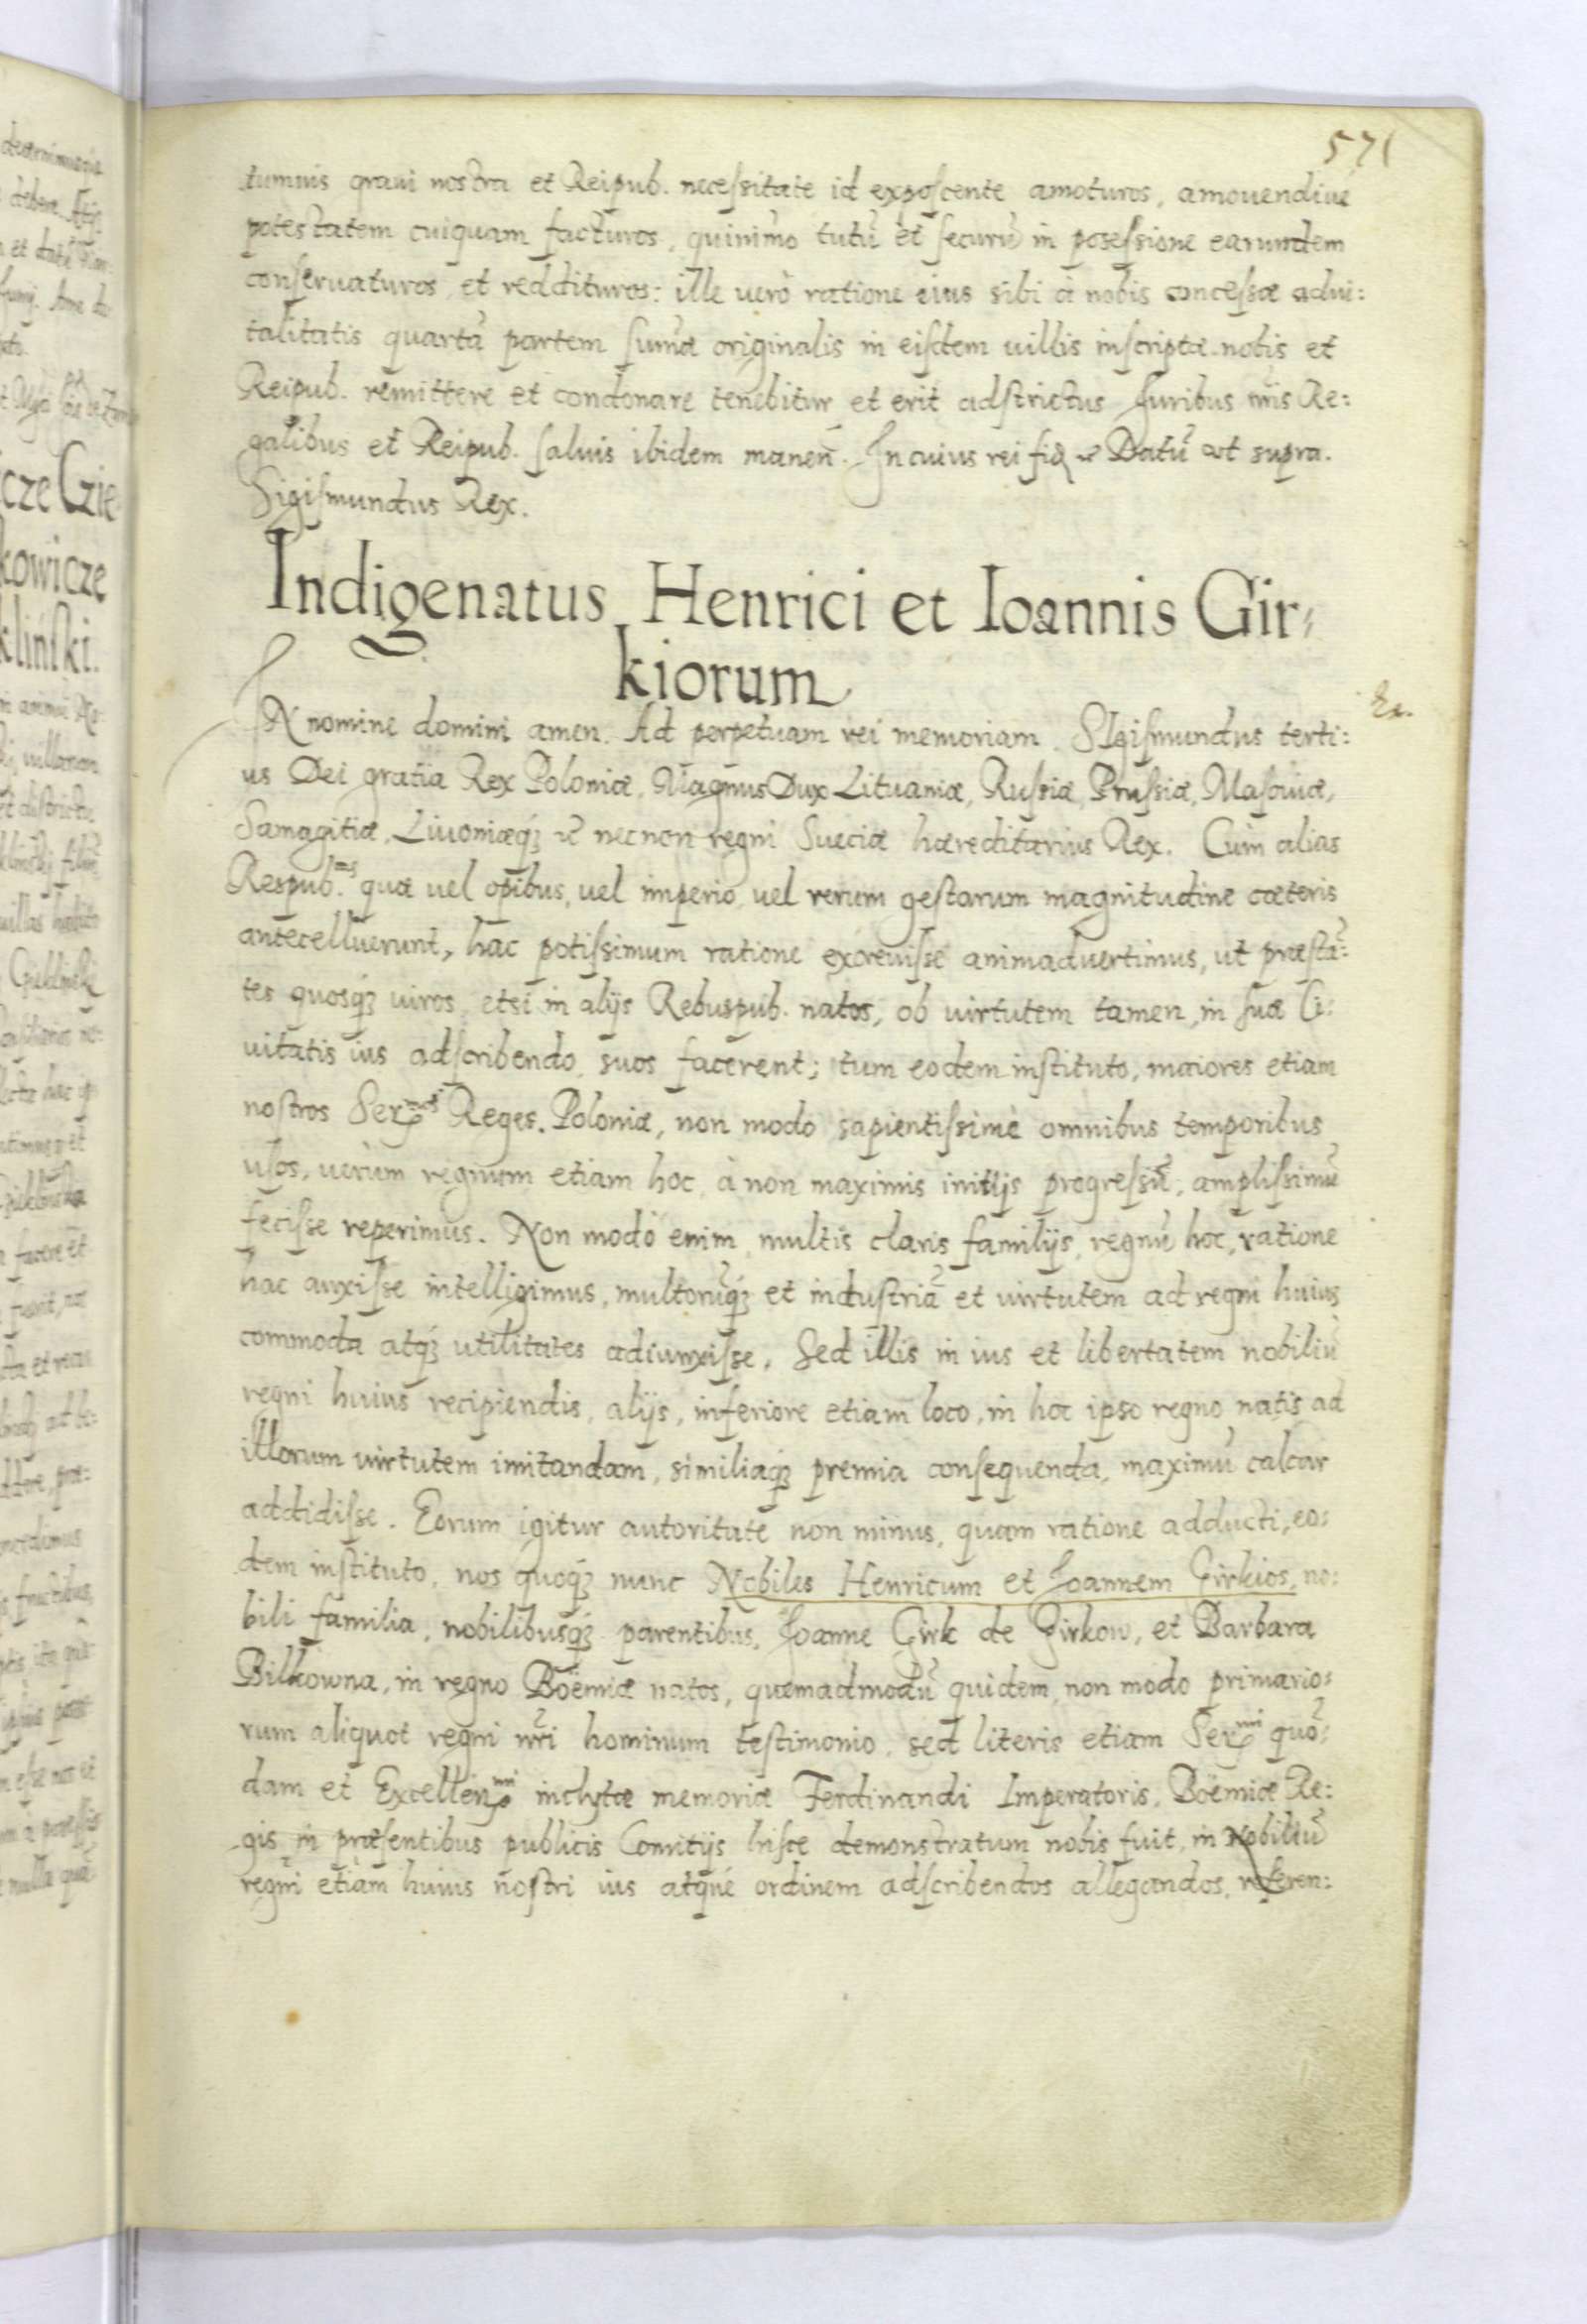 571
tumuis graui nostra et Reipub. necessitate id exposcente amoturos, amouendiue
potestatem cuiquam facturos, quinimo tutũ et securũ in posessione earumdem
conseruaturos, et reddituros: ille uerò ratione eius sibi à nobis concessæ adui:
talitatis quartã partem sum̃æ originalis in eisdem uillis inscriptæ nobis et
Reipub. remittere et condonare tenebitur et erit adstrictus Juribus nr̃is Re:
galibus et Reipub. saluis ibidem maneñ. In cuius rei fid Datũ ut supra.
Sigismundus Rex.
Indigenatus Henrici et Ioannis Gir:
kiorum
IN nomine domini amen. Ad perpetuam rei memoriam. SIgismundus terti:
us Dei gratia Rex Poloniæ, Magnus Dux Lituaniæ, Russiæ, Prussiæ, Masouiæ,
Samagitiæ, Liuoniæq; necnon regni Sueciæ hæreditarius Rex. Cùm alias
Respub.cas quæ uel opibus, uel imperio, uel rerum gestarum magnitudine cæteris
antecelluerunt, hac potissimum ratione excreuisse animaduertimus, ut præstã:
tes quosq; uiros, etsi in alijs Rebuspub. natos, ob uirtutem tamen, in suæ Ci:
uitatis ius adscribendo, suos facerent; tum eodem instituto, maiores etiam
nostros Ser.mos Reges Poloniæ, non modo sapientissimè omnibus temporibus
usos, uerùm regnum etiam hoc, à non maximis initijs progressũ, amplissimũ
fecisse reperimus. Non modo enim, multis claris familijs, regnũ hoc, ratione
hac auxisse intelligimus, multorũq; et industriã et uirtutem ad regni huius
commoda atq; utilitates adiunxisse, Sed illis in ius et libertatem nobiliũ
regni huius recipiendis, alijs, inferiore etiam loco, in hoc ipso regno natis ad
illorum uirtutem imitandam, similiaq; premia consequenda, maximũ calcar
addidisse. Eorum igitur autoritate non minus, quam ratione adducti, eo:
dem instituto, nos quoq; nunc Nobiles Henricum et Joannem Girkios, no:
bili familia, nobilibusq; parentibus, Joanne Girk de Girkow, et Barbara
Bilkowna, in regno Boëmiæ natos, quemadmodũ quidem, non modo primario:
rum aliquot regni nr̃i hominum testimonio, sed literis etiam Ser.mi quõ:
dam et Excellen.mi inclytæ memoriæ Ferdinandi Imperatoris, Boëmiæ Re:
gis in præsentibus publicis Comitijs hisce demonstratum nobis fuit, in Nobiliũ
regni etiam huius nostri ius atque ordinem adscribendos allegandos, referen: